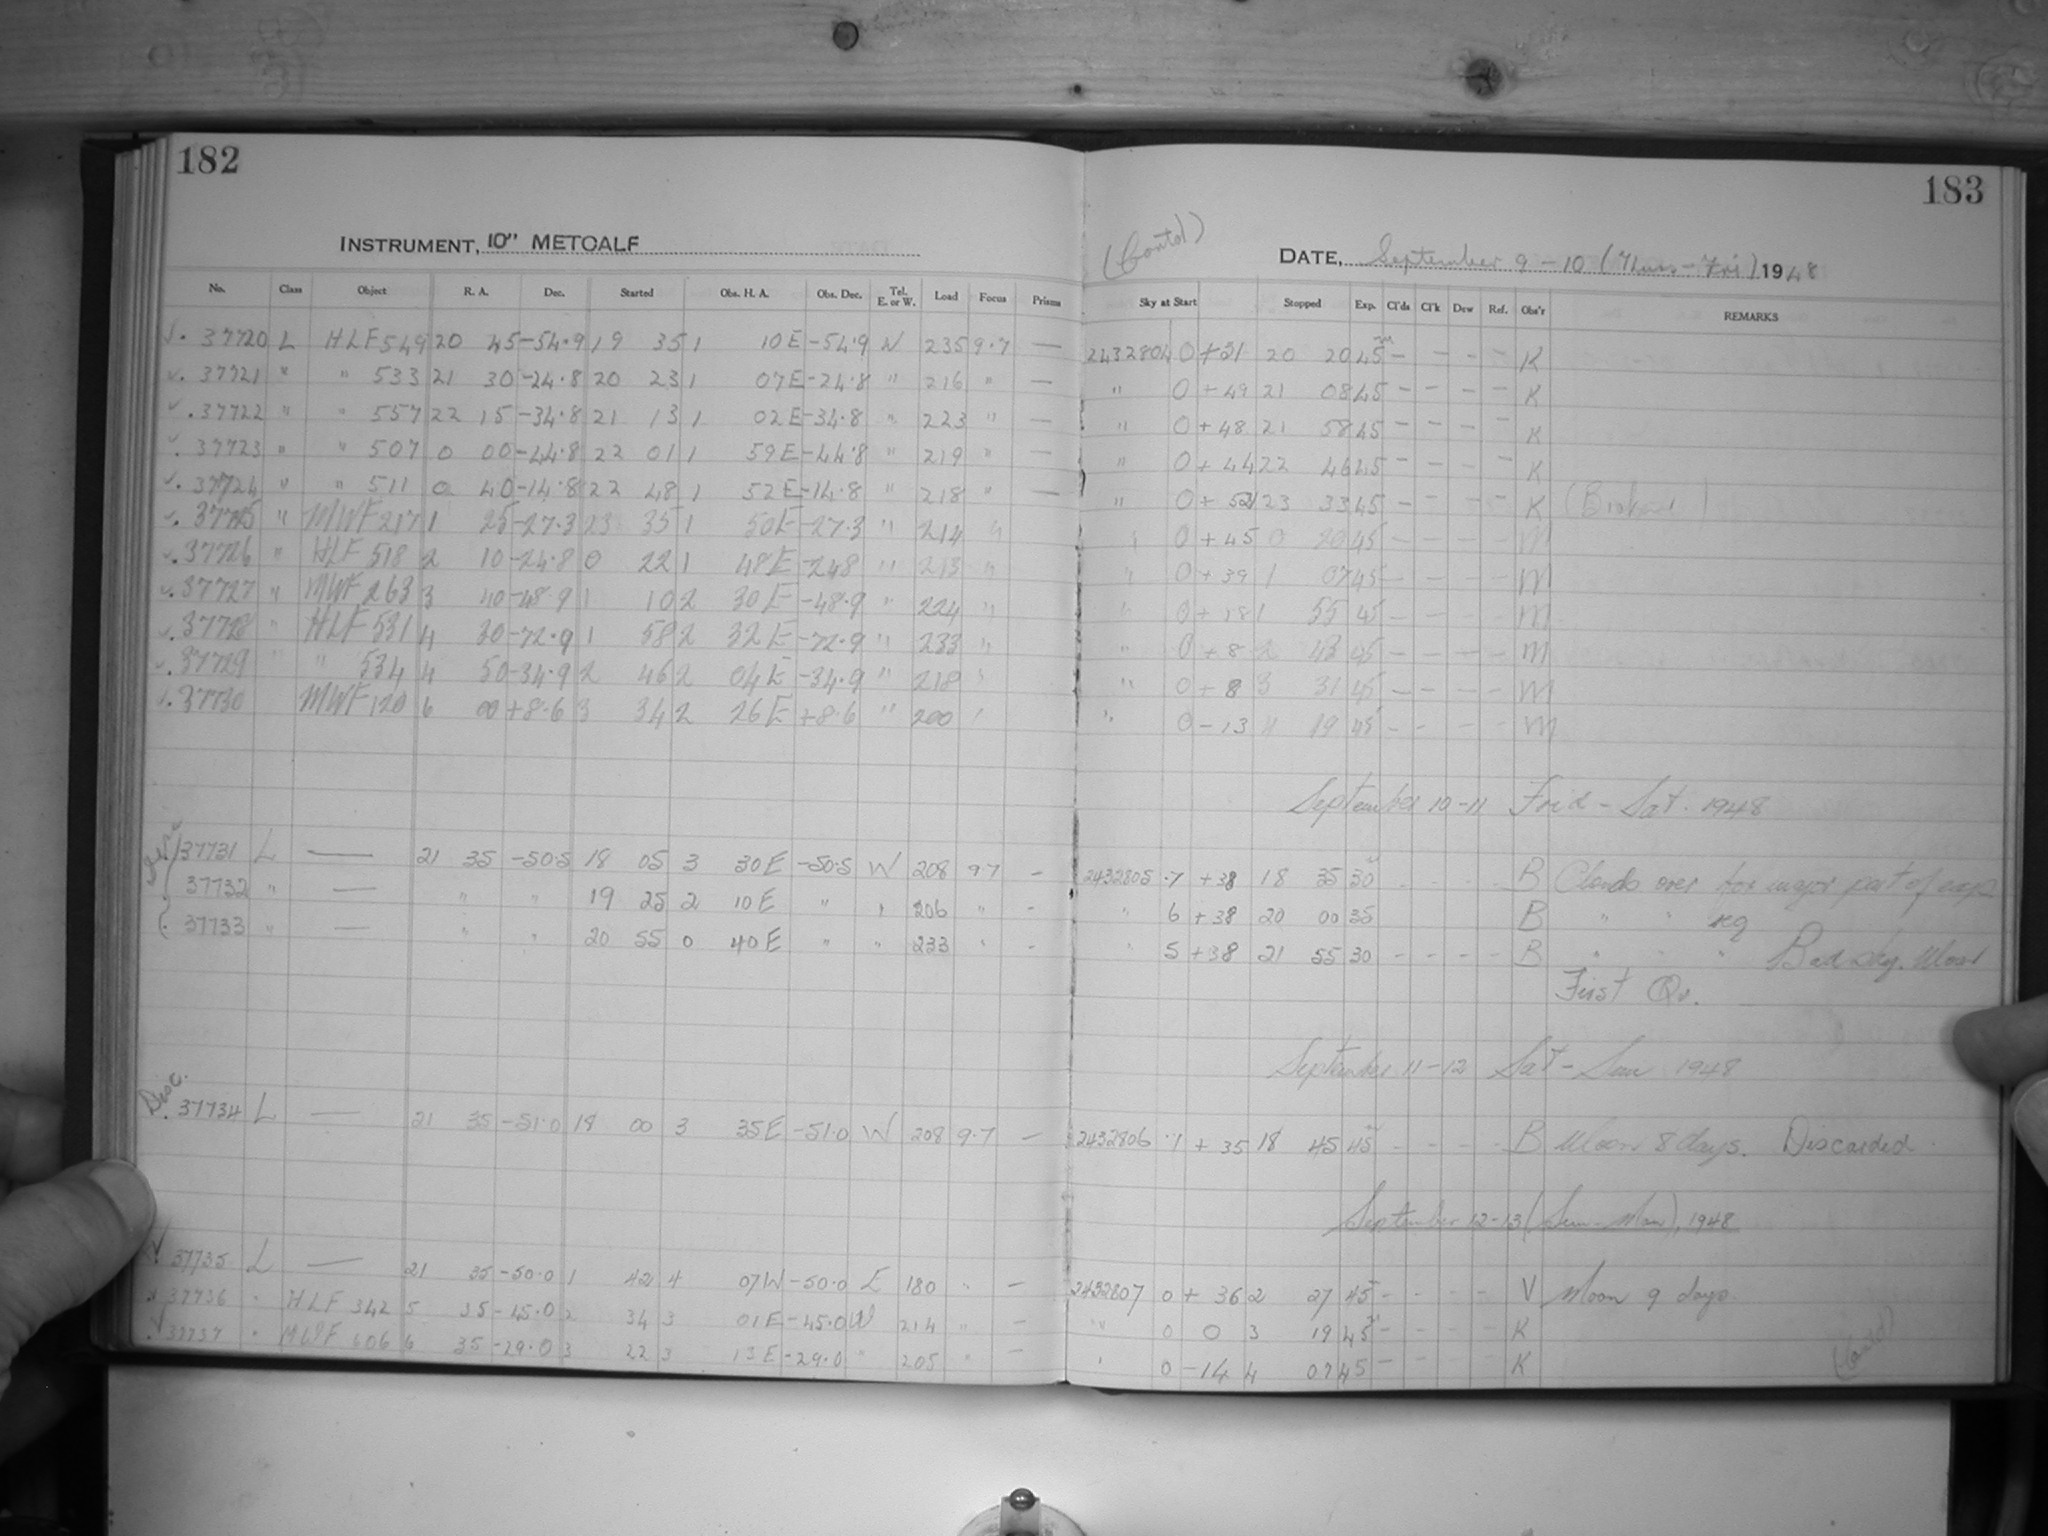 182
183
INSTRUMENT, 10" METCALF
(Contd)
DATE, September 9 - 10 (Thurs - Fri) 1948
No. Class Object R. A. Dec. Started Obs. H. A. Obs. Dec. Tel. E. or W. Load Focus Prisms Sky at Start Stopped Exp. Cl'ds Cl'k Dew Ref. Obs'r REMARKS
37720 L HLF 549 20 45 -54.9 19 35 1 10 E -54.9 W 235 9.7 — 2432804 0 +51 20 20 45m - - - - K
37721 " " 533 21 30 -24.8 20 23 1 07 E -24.8 " 216 " — " 0 +49 21 08 45 - - - - K
37722 " " 557 22 15 -34.8 21 13 1 02 E -34.8 " 223 " — " 0 +48 21 58 45 - - - - K
37723 " " 507 0 00 -44.8 22 01 1 59 E -44.8 " 219 " — " 0 +44 22 46 45 - - - - K
37724 " " 511 0 40 -14.8 22 48 1 52 E -14.8 " 218 " — " 0 + 23 33 45 - - - - K
37725 " MWF 217 1 25 -27.3 23 35 1 50 E -27.3 " 214 " " 0 +45 0 20 45 - - - - M
37726 " HLF 518 2 10 -24.8 0 22 1 48 E -24.8 " 213 " " 0 +39 1 07 45 - - - - M
37727 " MWF 263 3 40 -48.9 1 10 2 30 E -48.9 " 224 " " 0 +18 1 55 45 - - - - M
37728 " HLF 531 4 30 -72.9 1 58 2 32 E -72.9 " 233 " " 0 +8 2 43 45 - - - - M
37729 " " 534 4 50 -34.9 2 46 2 04 E -34.9 " 218 " " 0 +8 3 31 45 - - - - M
37730 MWF 120 6 00 +8.6 3 34 2 26 E +8.6 " 200 " " 0 -13 4 19 45 - - - - M
September 10-11 Frid - Sat. 1948
37731 L — 21 35 -50.5 18 05 3 30 E -50.5 W 208 9.7 - 2432805 .7 +38 18 35 30 - - - - B Clouds over for major part of exp
37732 " — " " 19 25 2 10 E " " 206 " - " 6 +38 20 00 35 B " "
37733 " — " " 20 55 0 40 E " " 233 " - " 5 +38 21 55 30 - - - - B " " " Bad sky. Moon
First Qr.
September 11-12 Sat - Sun 1948
Disc. 37734 L — 21 35 -51.0 18 00 3 35 E -51.0 W 208 9.7 — 2432806 .7 +35 18 45 45 - - - - B Moon 8 days. Discarded
September 12-13 (Sun - Mon), 1948
37735 L — 21 35 -50.0 1 42 4 07 W -50.0 E 180 " — 2432807 0 +36 2 27 45 - - - - V Moon 9 days
37736 " HLF 342 5 35 -45.0 2 34 3 01 E -45.0 W 214 " — " 0 0 3 19 45 - - - - K
37737 " MWF 606 6 35 -29.0 3 22 3 13 E -29.0 " 205 " — " 0 -14 4 07 45 - - - - K
(Contd)